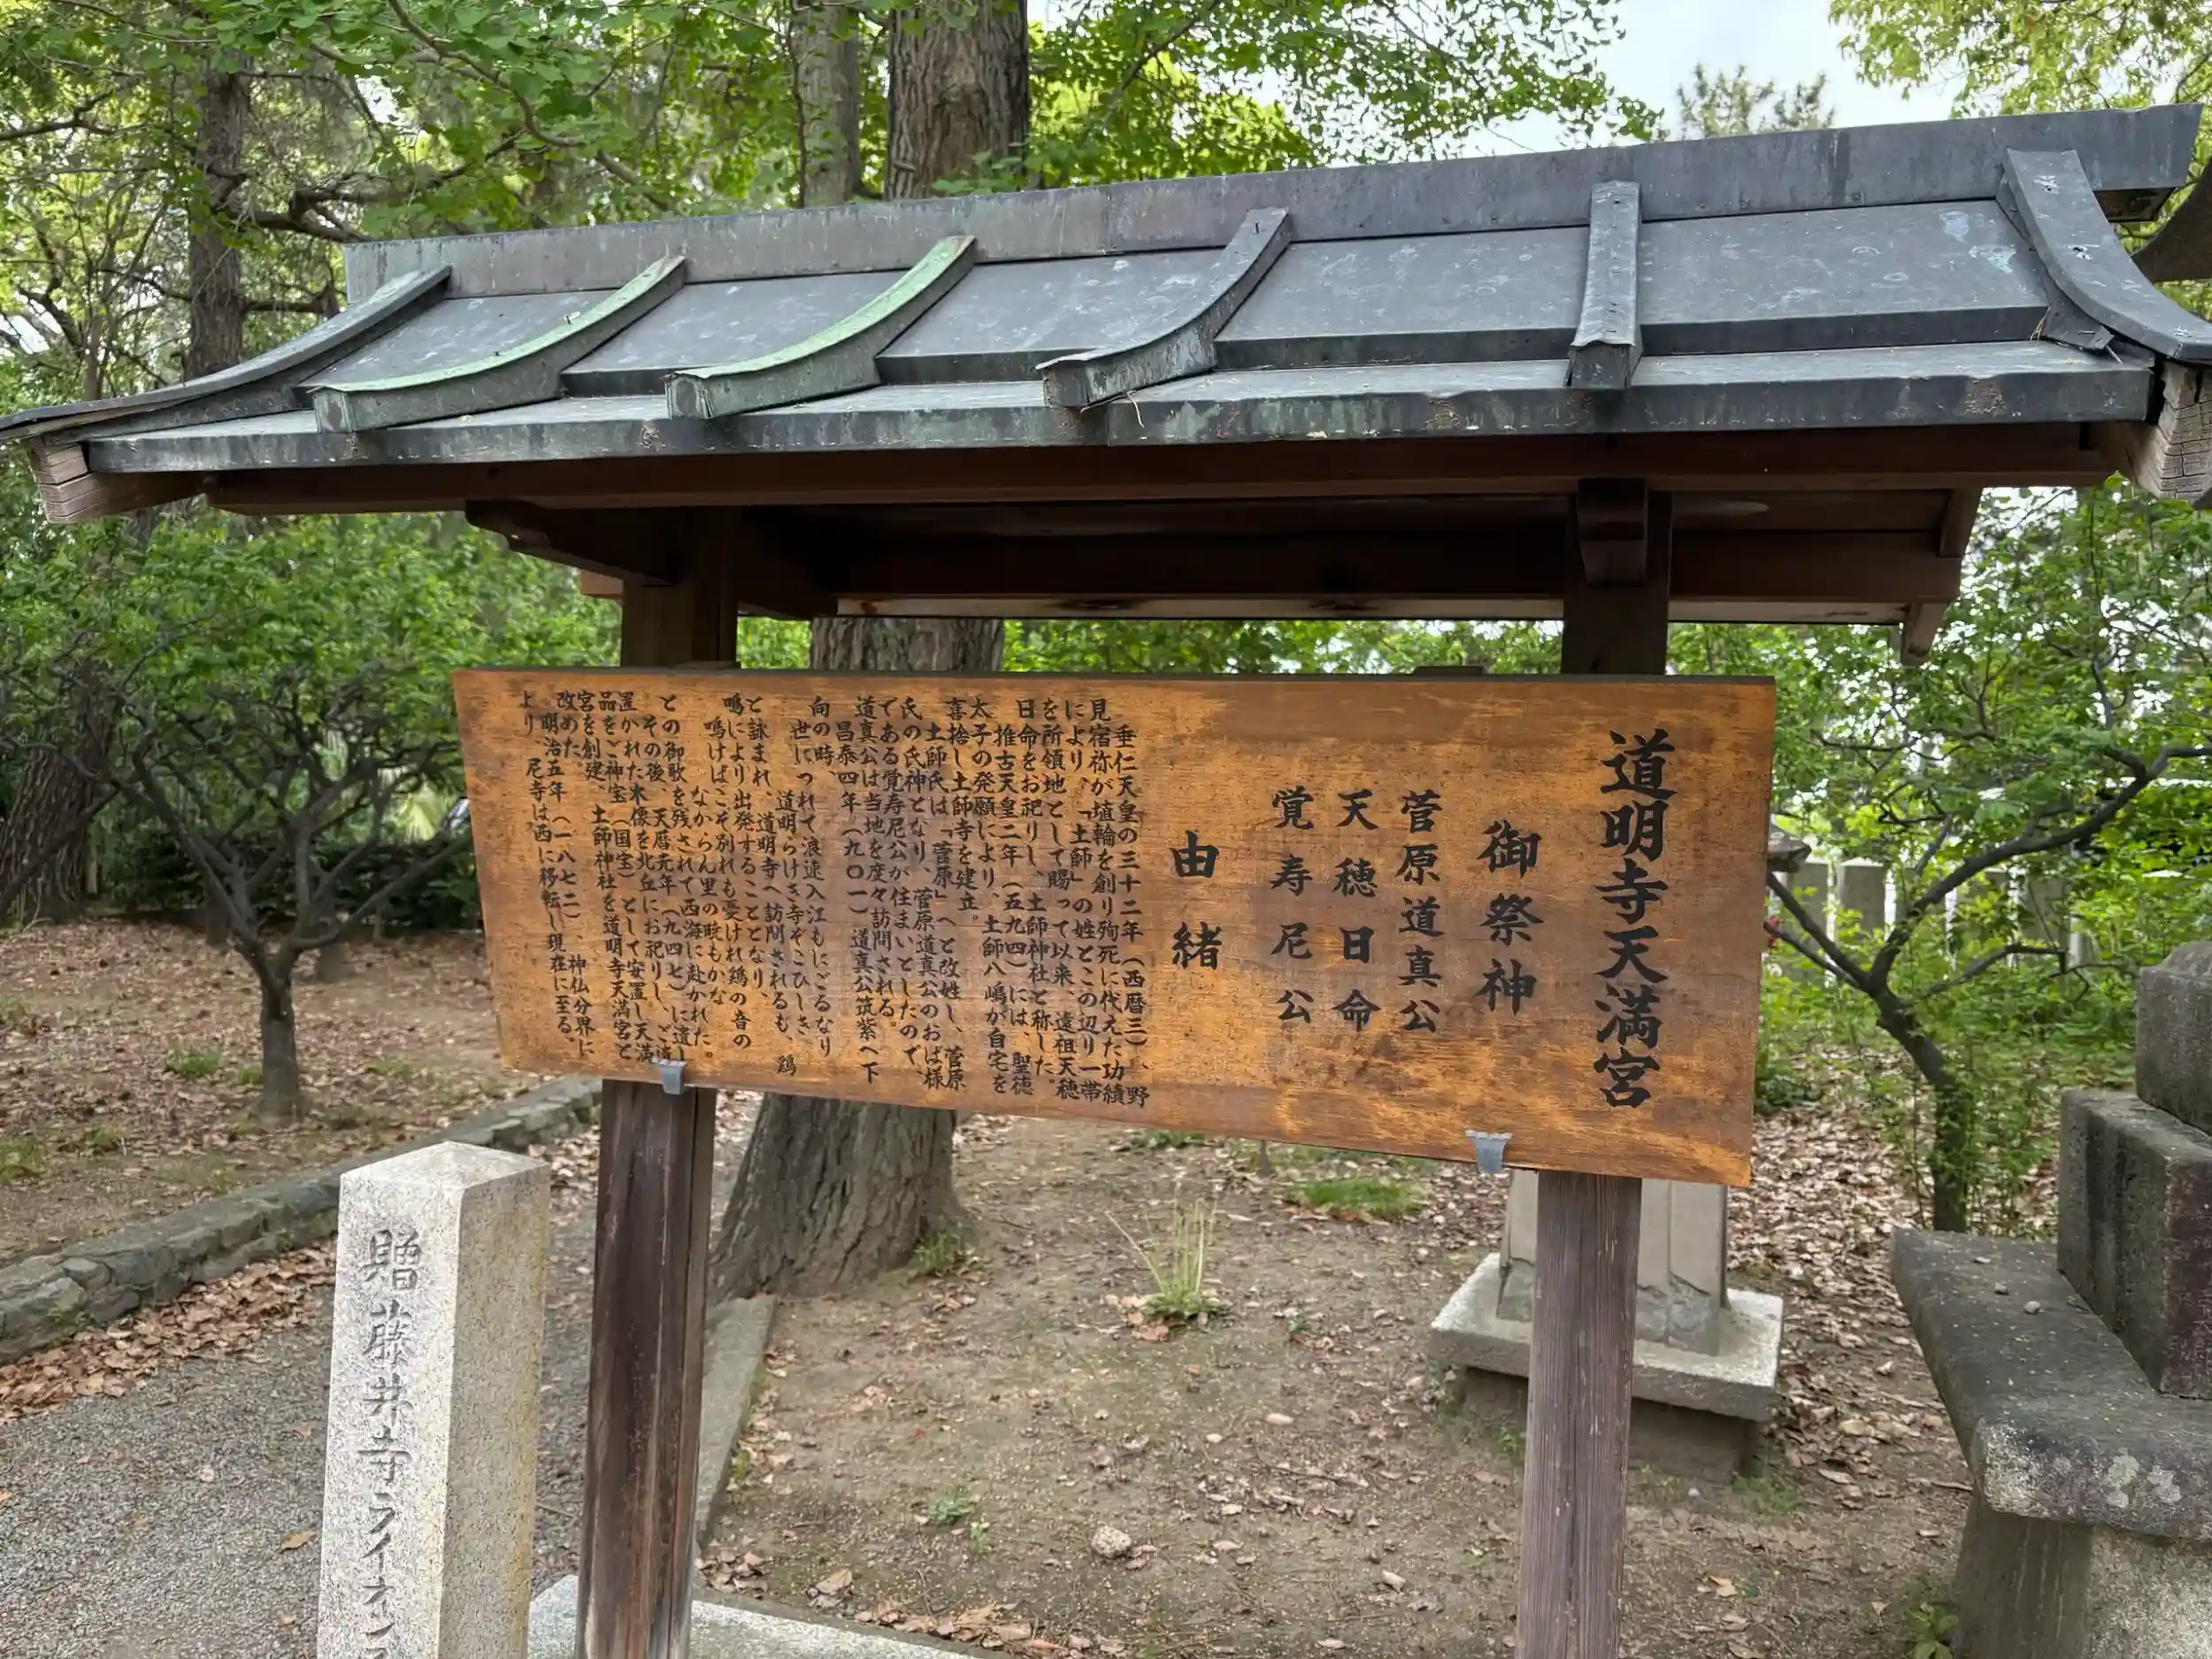 道明寺天満宮
御祭神
菅原道真公
天穂日命
覚寿尼公
由緒
垂仁天皇の三十二年（西暦三）、野
見宿祢が埴輪を創り殉死に代えた功績
により、「土師」の姓とこの辺り一帯
を所領地として賜って以来、遠祖天穂
日命をお祀りし、土師神社と称した。
推古天皇二年（五九四）には、聖徳
太子の発願により、土師八嶋が自宅を
喜捨し土師寺を建立。
土師氏は「菅原」へと改姓し、菅原
氏の氏神となり、菅原道真公のおば様
である覚寿尼公が住まいとしたので、
道真公は当地を度々訪問される。
昌泰四年（九〇一）道真公筑紫へ下
向の時、
世につれて浪速入江もにごるなり
道明らけき寺ぞこひしき
と詠まれ、道明寺へ訪問されるも、鶏
鳴により出発することとなり、
鳴けばこそ別れも憂けれ鶏の音の
なからん里の暁もかな
との御歌を残されて西海に赴かれた。
その後、天暦元年（九四七）に遺し
置かれた木像を北丘にお祀りし、ご遺
品をご神宝（国宝）として安置し天満
宮を創建、土師神社を道明寺天満宮と
改めた。
明治五年（一八七二）、神仏分界に
より、尼寺は西に移転し現在に至る。
贈藤井寺ライオン